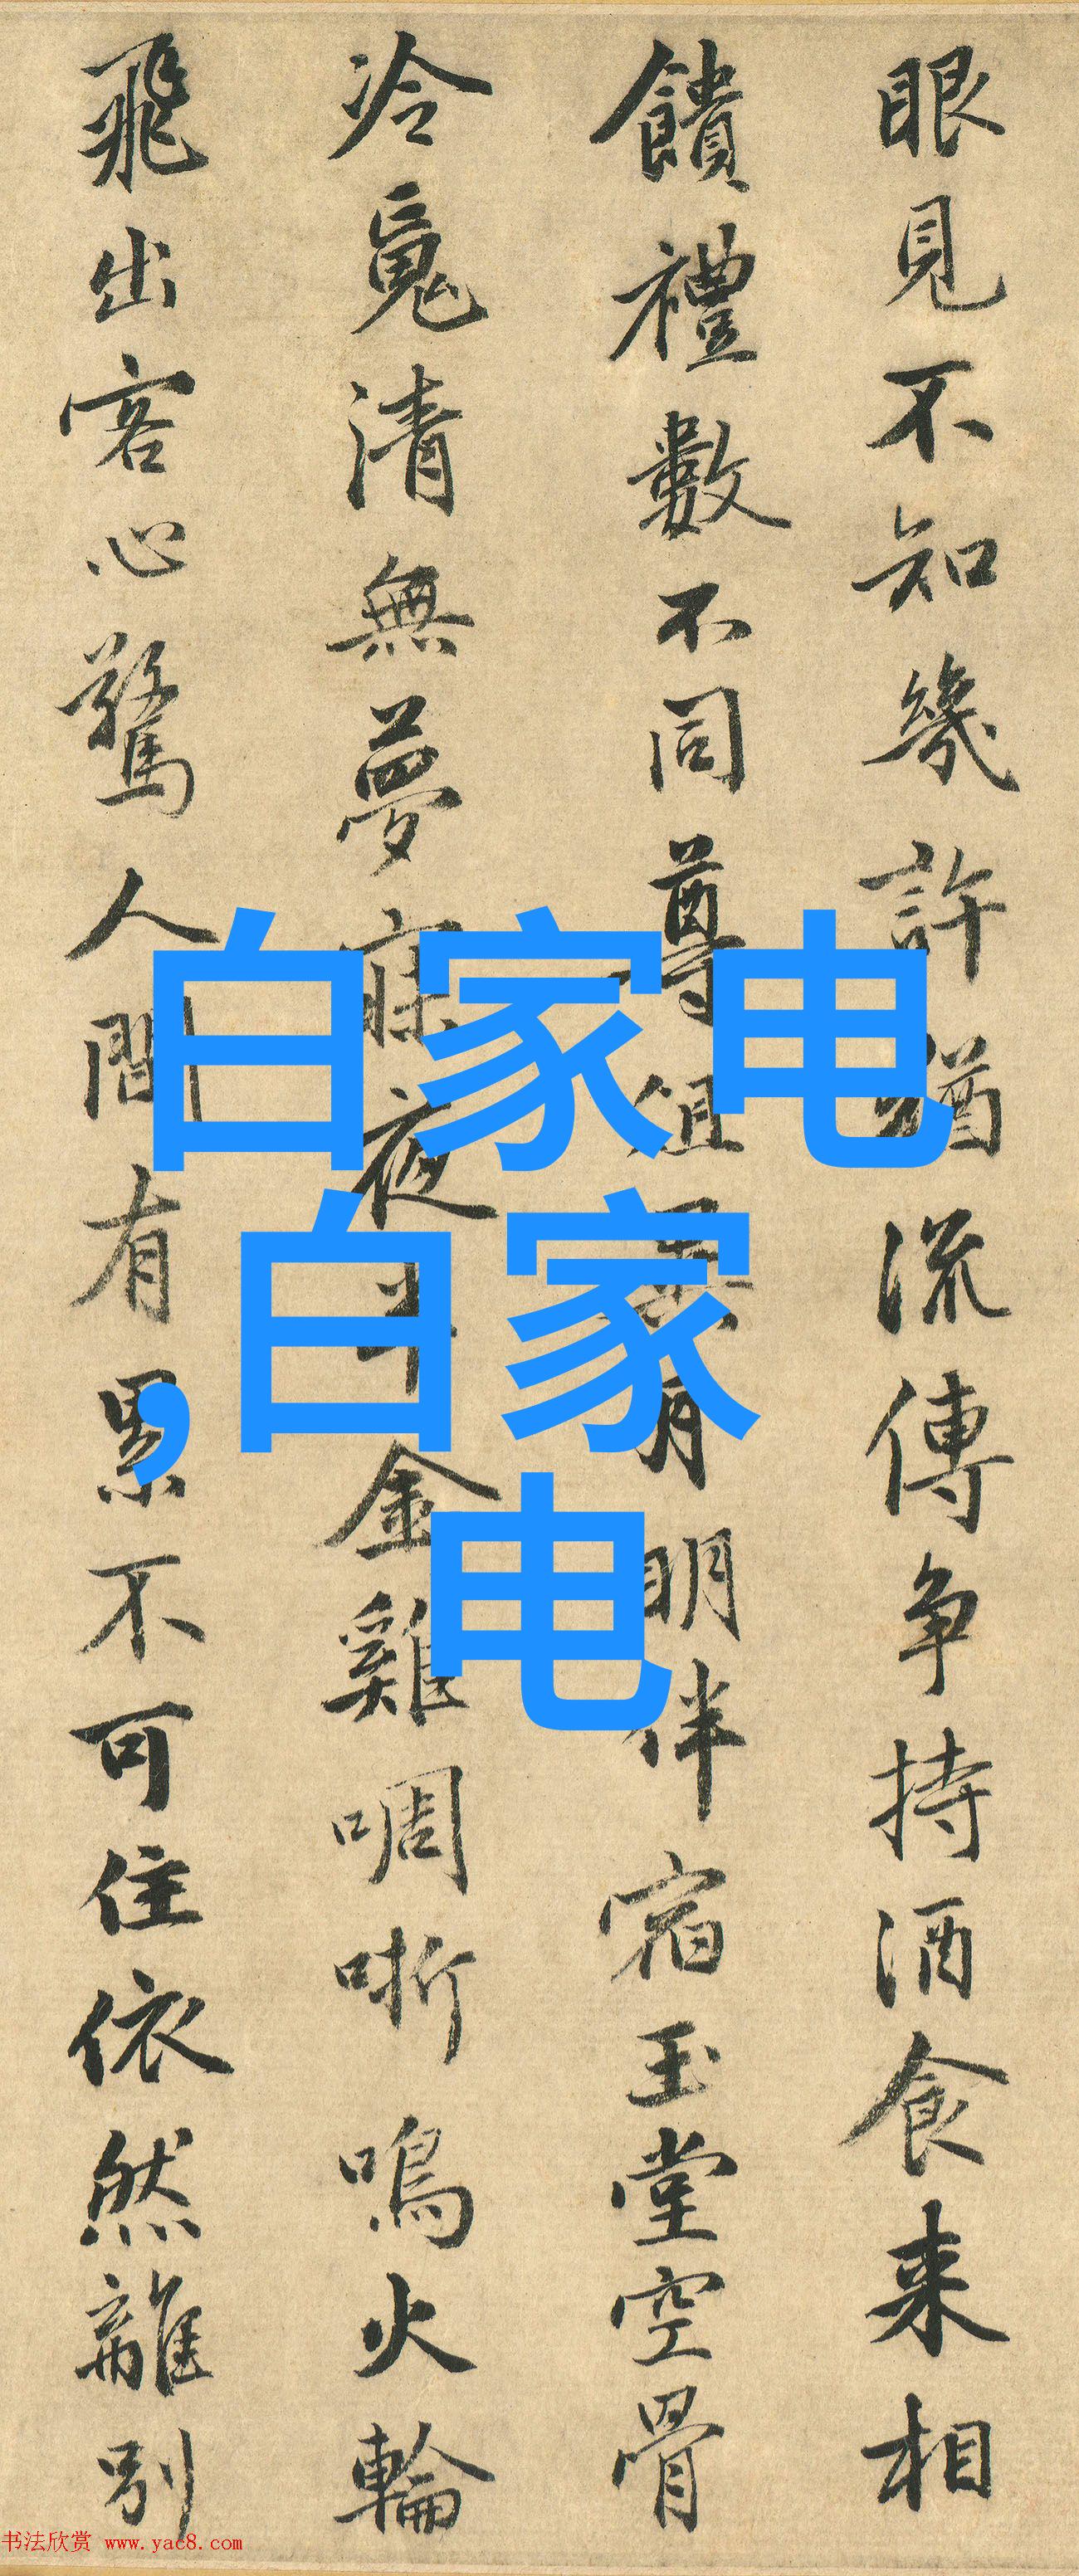 眼見不知幾許猶流傳争持酒食来相
饋禮數不同尊俎無有明伴宿玉堂空骨
冷覓清無夢寐夜半金雞啁哳鳴火輪
飛出客心驚人間有累不可住依然離別
白家电
,白家
电
书法欣赏 www.yac8.com